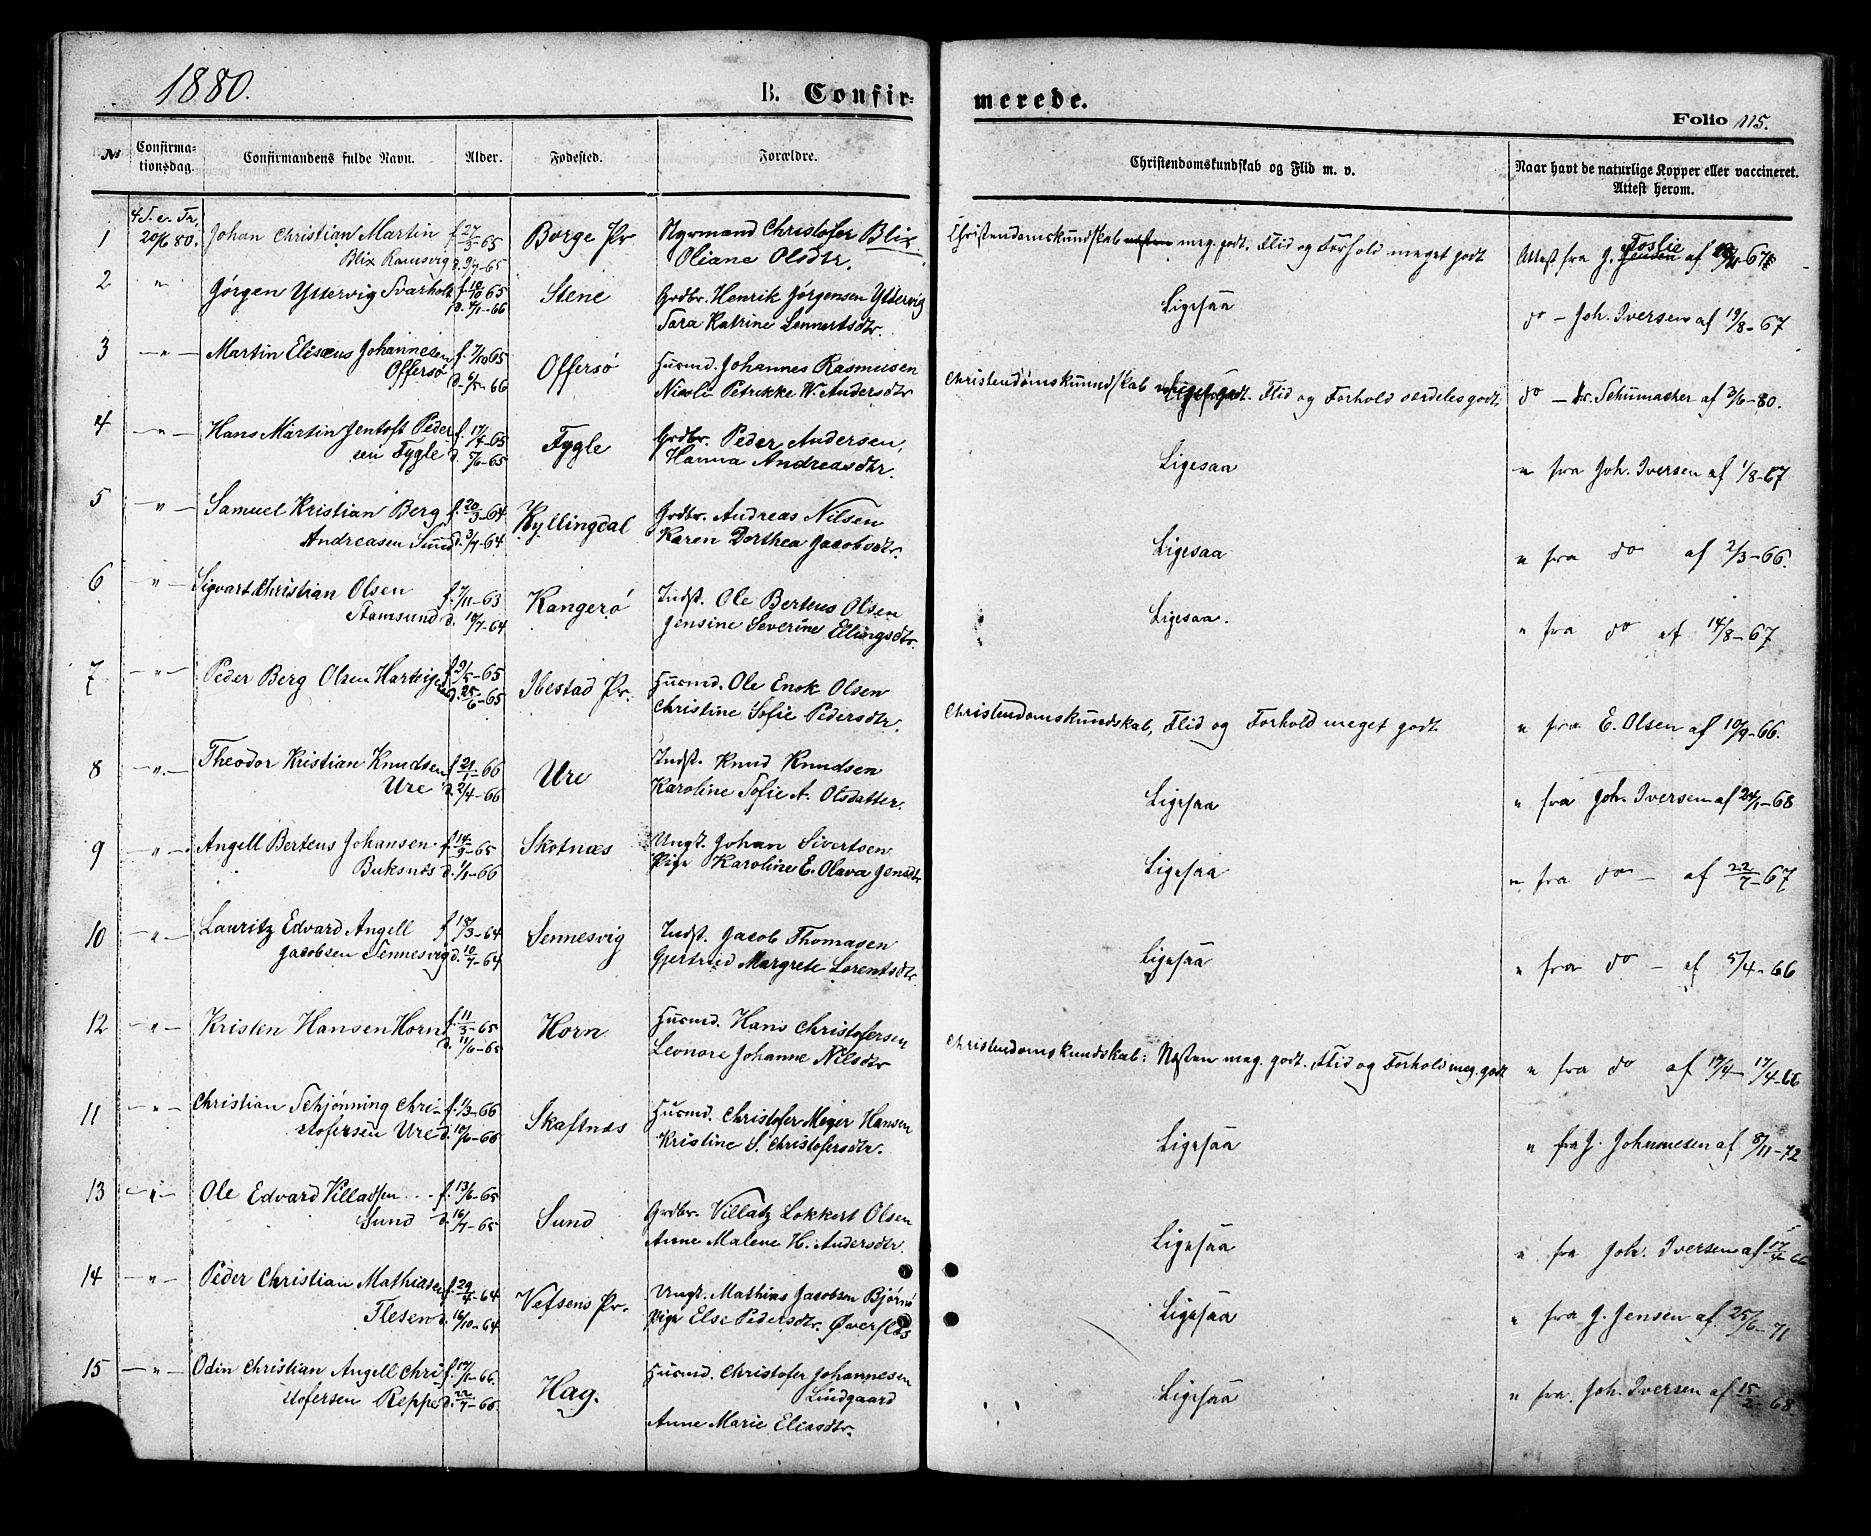 1880.
B. Confir-
merede.
Folio 115.
№
Confirma-
tionsdag.
Confirmandens fulde Navn.
Alder.
Fødested.
Forældre.
Christendomskundskab og Flid m. v.
Naar havt de naturlige Kopper eller vaccineret.
Attest herom.
1 4 S. e. Tr. 20/6 80. Johan Christian Martin f. 27/5-65 Borge Pr Nyrmand Christofer Blix Christendomskundskab næsten meg. godt, Flid og Forhold meget godt Attest fra J. Foslie af
Blix Ramsvig d. 9/7-65 Oliane Olsdtr.
2 " Jørgen Yttervig Svarholt f. 10/10 65 Stene Grdbr. Henrik Jørgensen Yttervig Ligesaa do - Joh. Iversen af 19/8-67
d. 4/1-66 Sara Katrine Lennertsdtr.
3 -"- Martin Elisæus Johannesen f. 7/10 65 Offersø Husmd. Johannes Rasmusen Christendomskunndskab godt. Flid og Forhold særdeles godt. do - Dr. Schumacher af 3/6-80.
Offersø d. 6/5-66 Nicoli Petrikke W. Andersdtr
4 -"- Hans Martin Jentoft Peder f. 17/4-65 Fygle Grdbr. Peder Andersen, Ligesaa " fra Joh. Iversen af 1/8-67
sen Fygle d. 5/6-65 Hanna Andreasdtr.
5 -"- Samuel Kristian Berg f. 20/3-64 Kyllingdal Grdbr. Andreas Nilsen Ligesaa " fra do af 2/3-66.
Andreasen Sund d. 3/7-64 Karen Dorthea Jacobsdtr.
6 -"- Sigvart Christian Olsen f. 7/11-63 Kangerø Indst. Ole Berteus Olsen Ligesaa. " fra do af 14/8-67
Stamsund d. 10/7-64 Jensine Severine Ellingsdtr.
7 -"- Peder Berg Olsen Hartvigsen f. 9/5-65 Ibestad Pr. Husmd. Ole Enok Olsen Christendomskundskab, Flid og Forhold meget godt. " fra E. Olsen af 10/9-66.
d. 25/6-65 Christine Sofie Pedersdtr.
8 -"- Theodor Kristian Knudsen f. 21/1-66 Ure Indst. Knud Knudsen Ligesaa " fra Joh. Iversen af 24/1-68
Ure d. 2/4-66 Karoline Sofie A. Olsdatter.
9 -"- Angell Berteus Johansen f. 14/9-65 Skotnæs Ungk. Johan Sivertsen Ligesaa " fra do - af 22/7-67
Buksnæs d. 1/1-66 Pige Karoline E. Olava Jensdtr
10 -"- Lauritz Edvard Angell f. 15/3-64 Sennesvig Indst. Jacob Thomasen Ligesaa " fra do - af 5/4-66
Jacobsen Sennesvig d. 10/7-64 Gjertrud Margrete Lorentsdtr.
12 -"- Kristen Hansen Horn f. 11/3-65 Horn Husmd. Hans Christofersen Christendomskundskab: Næsten meg. godt. Flid og Forhold meg. godt " fra do af 17/4- 17/4-66
d. 11/6-65 Leonore Johanne Nilsdtr
11 -"- Christian Schjønning Chri- f. 1/3-66 Skaftnæs Husmd. Christofer Meyer Hansen Ligesaa " fra J. Johannesen af 8/11-72
stofersen Ure d. 10/6-66 Kristine S. Christofersdtr.
13 -"- Ole Edvard Villadsen f. 13/6-65 Sund Grdbr. Villatz Lokkert Olsen Ligesaa " fra Joh. Iversen af 17/4-66
Sund d. 16/7-65 Anne Malene H. Andersdtr.
14 -"- Peder Christian Mathiasen f. 29/4-64 Vefsens Pr. Ungk. Mathias Jacobsen Bjørnø Ligesaa " fra J. Jensen af 25/6-71
Flesen d. 16/10-64 Pige Else Pedersdtr. Øverflos
15 -"- Odin Christian Angell Chri f. 17/1-66. Hag. Husmd. Christofer Johannesen Ligesaa " fra. Joh. Iversen af 15/2-68.
stofersen Reppe d. 22/7-66. Lindgaard
Anne Marie Eliasdtr.